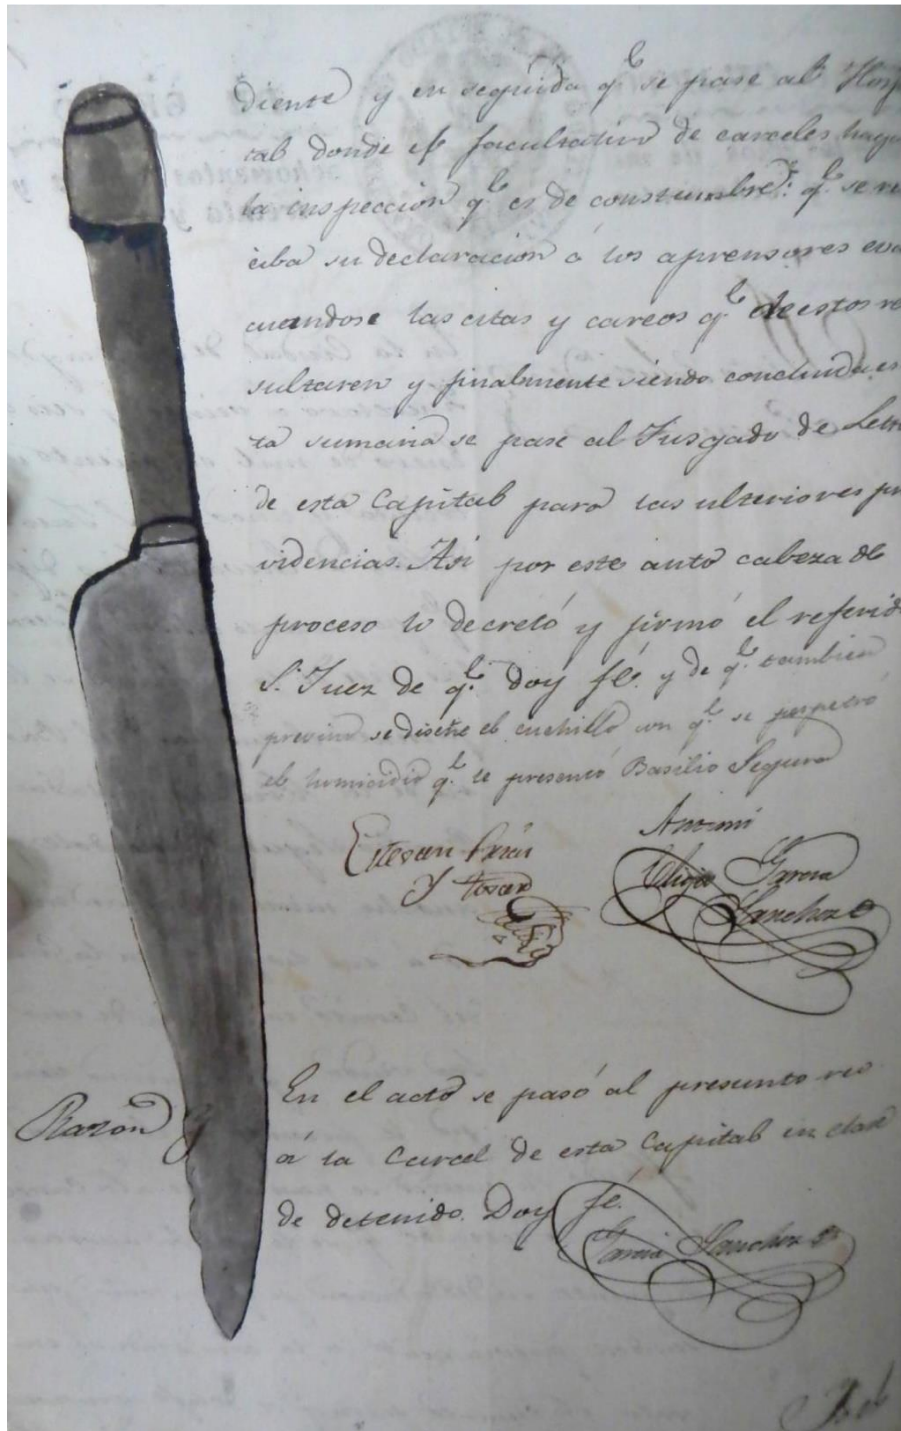 diente y en seguida q.e se pase al Hosp
tal donde el facultativo de carceles haga
la inspeccion q.e es de constumbre: q.e se re
ciba su declaracion á los aprensores eva
cuandose las citas y careos q.e de estos re
sultaren y finalmente siendo concluida es
ta sumaria se pase al Jusgado de Letra
de esta Capital para las ulteriores pro
videncias. Asi por este auto cabeza de
proceso lo decretó y firmó el referido
S. Juez de q.e doy fé. y de q.e tambien
previno se diseñe el cuchillo con q.e se perpetró
el homicidio q.e le presentó Basilio Segura
Antemi
Estevan
y
Garcia
Sanchez
Razon
En el acto se pasó al presunto reo
á la Carcel de esta Capital en clase
de detenido. Doy fé.
Garcia Sanchez